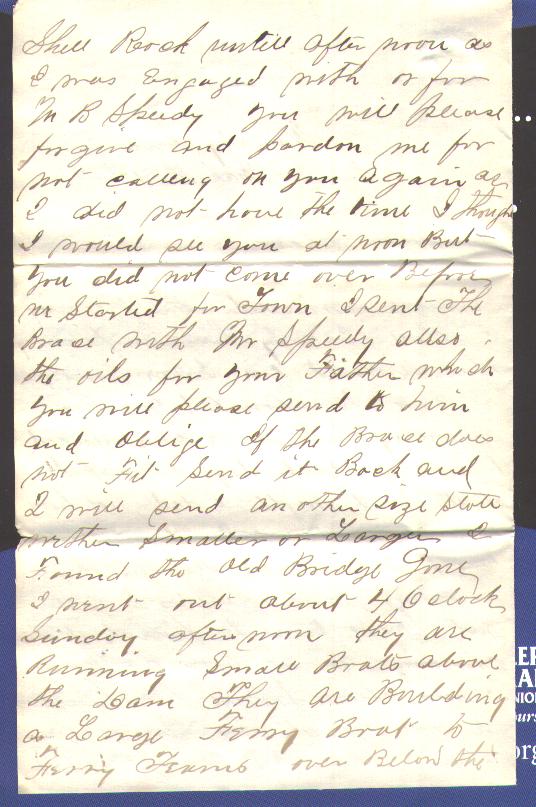 Shell Rock untill after noon as
I was Engaged with or for
M B Speedy you will please
forgive and pardon me for
not calling on you again as
I did not have the time I thought
I would see you at noon But
you did not come over Before
we Started for Town I sent The
Brase with Mr Speedy allso
the oils for your Father which
you will please send to him
and oblige If the Brase does
not Fit Send it Back and
I will send another size State
wether Smaller or Larger I
Found the old Bridge Gone
I went out about 4 Oclock
Sunday afternoon they are
Running Small Boats above
the Dam They are Building
a Large Ferry Boat to
Ferry Teams over Below the